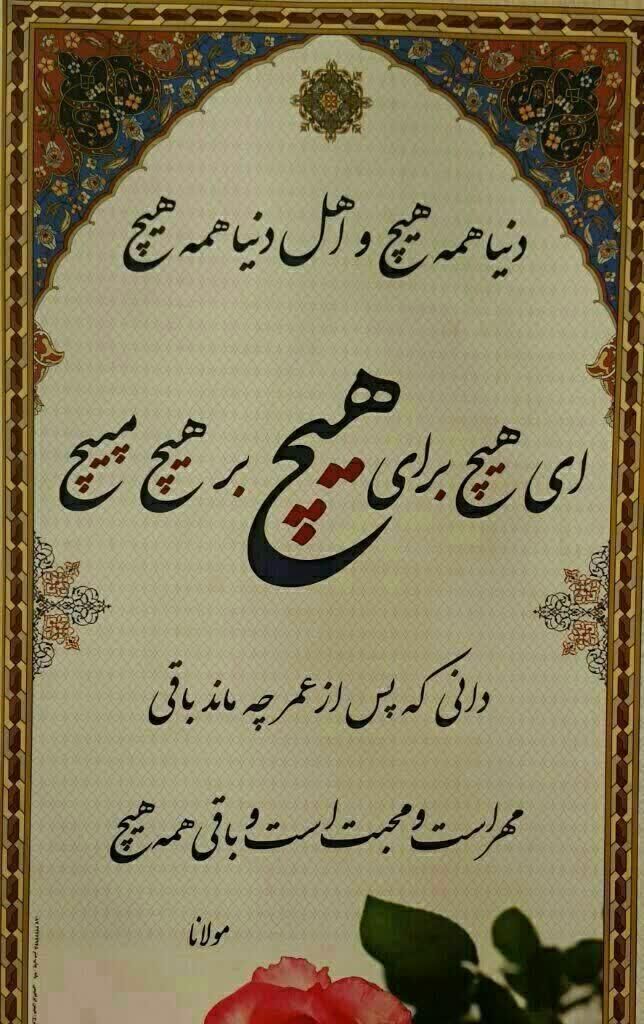 دنیا همه هیچ و اهل دنیا همه هیچ
ای هیچ برای هیچ بر هیچ مپیچ
دانی که پس از عمر چه ماند باقی
مهر است و محبت است و باقی همه هیچ
مولانا